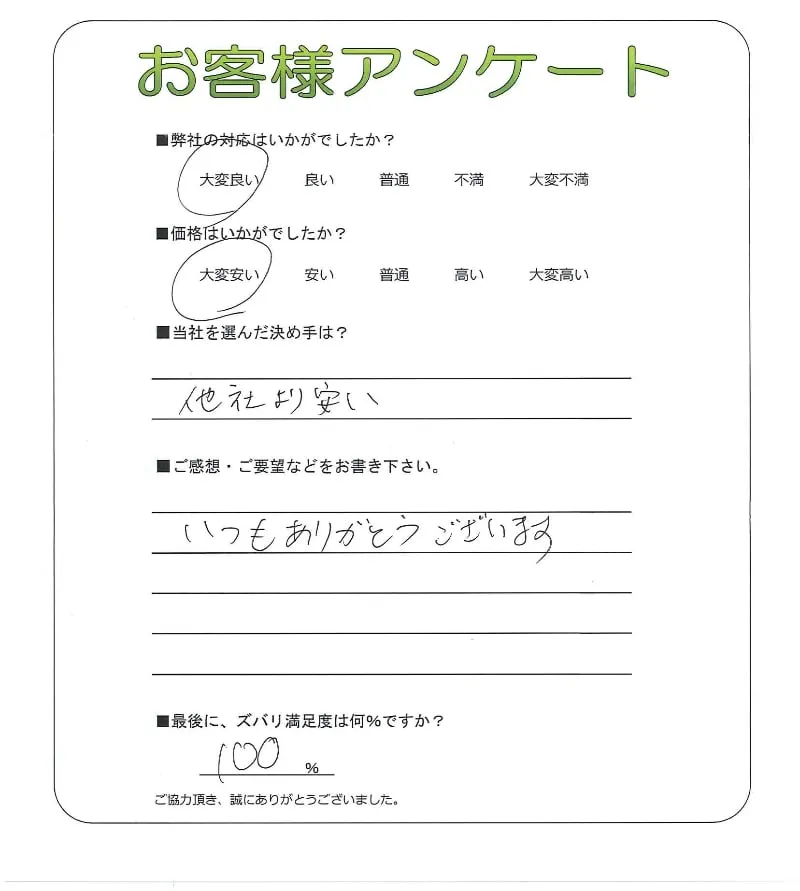 お客様アンケート
■弊社の対応はいかがでしたか？
大変良い 良い 普通 不満 大変不満
■価格はいかがでしたか？
大変安い 安い 普通 高い 大変高い
■当社を選んだ決め手は？
他社より安い
■ご感想・ご要望などをお書き下さい。
いつもありがとうございます
■最後に、ズバリ満足度は何%ですか？
100 %
ご協力頂き、誠にありがとうございました。